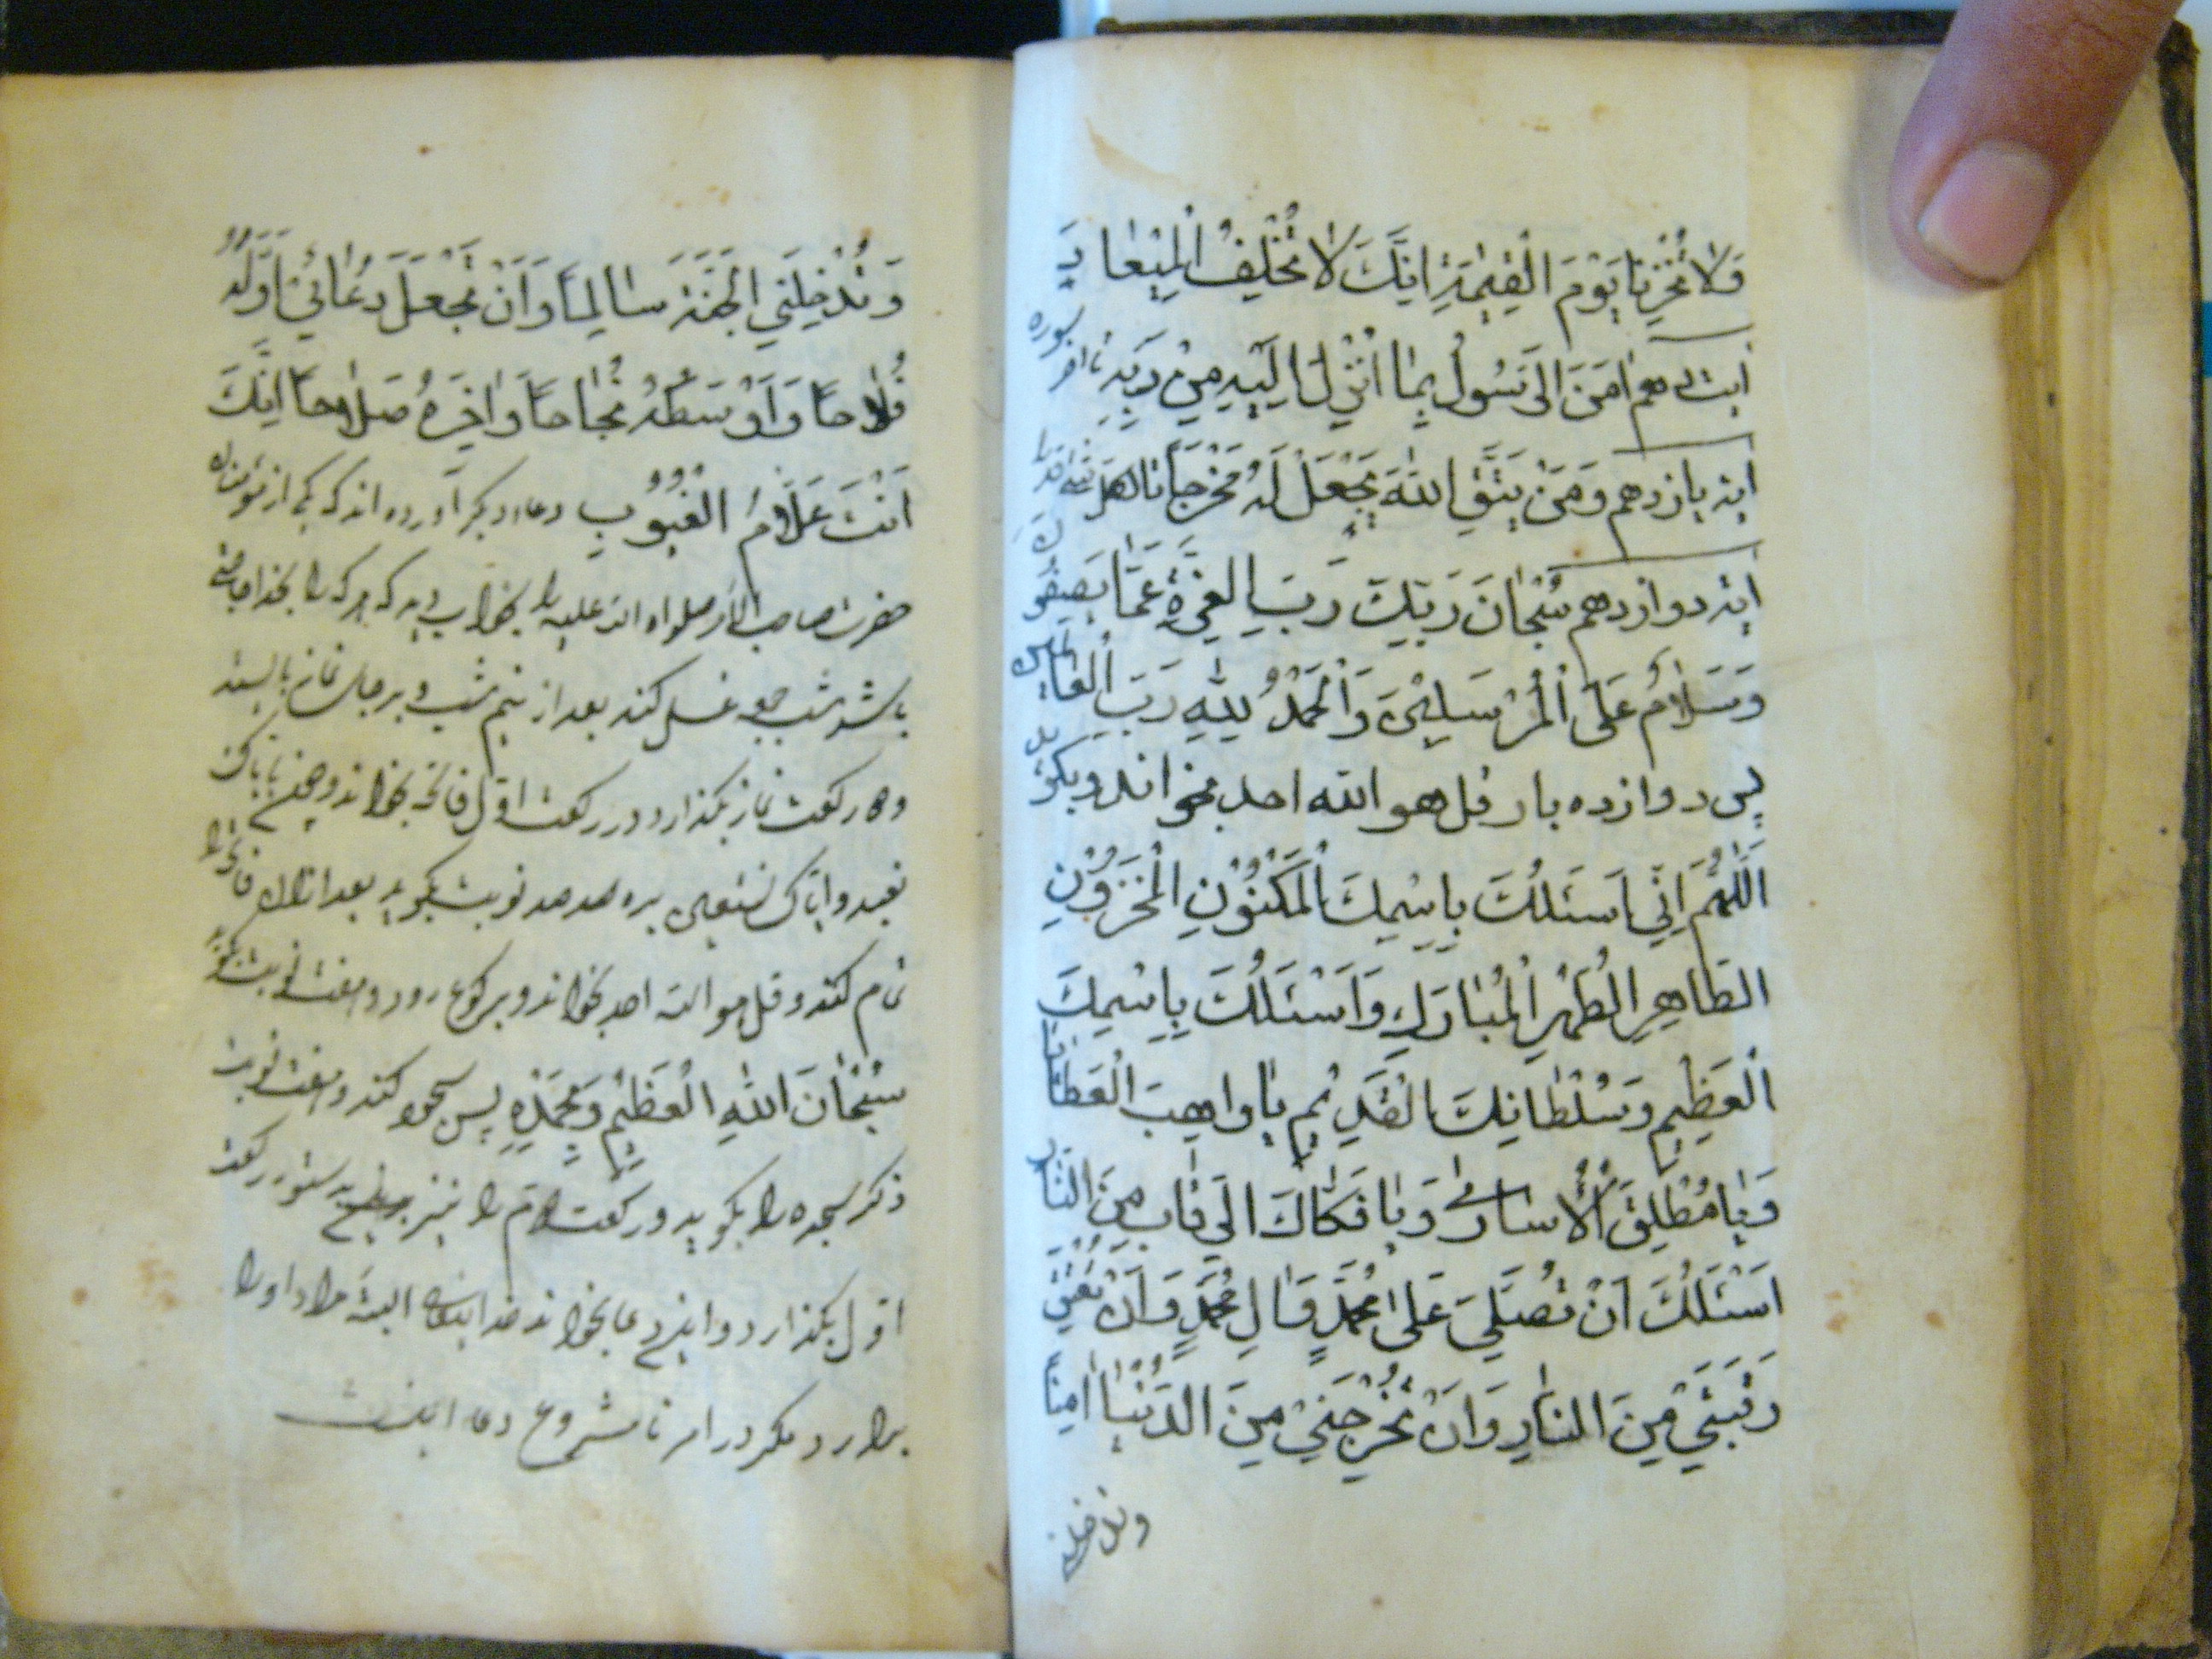 وَلَا تُخْزِنَا يَوْمَ الْقِيٰمَةِ اِنَّكَ لَا تُخْلِفُ الْمِيْعَادَ
آيت دهم اٰمَنَ الرَّسُولُ بِمَا اُنْزِلَ اِلَيْهِ مِنْ رَبِّهِ تا آخر سوره
آيه يازدهم وَمَنْ يَتَّقِ اللّٰهَ يَجْعَلْ لَهُ مَخْرَجًا تا
آيه دوازدهم سُبْحَانَ رَبِّكَ رَبِّ الْعِزَّةِ عَمَّا يَصِفُونَ
وَسَلَامٌ عَلَى الْمُرْسَلِيْنَ وَالْحَمْدُ لِلّٰهِ رَبِّ الْعَالَمِينَ
پس دوازده بار قل هو الله احد بخواند و بگويد
اَللّٰهُمَّ اِنِّي اَسْئَلُكَ بِاِسْمِكَ الْمَكْنُوْنِ الْمَخْزُوْنِ
الطَّاهِرِ الطُّهْرِ الْمُبَارَكِ وَاَسْئَلُكَ بِاِسْمِكَ
الْعَظِيْمِ وَسُلْطَانِكَ الْقَدِيْمِ يَا وَاهِبَ الْعَطَايَا
وَيَا مُطْلِقَ الْاُسَارٰى وَيَا فَكَّاكَ الرِّقَابِ مِنَ النَّارِ
اَسْئَلُكَ اَنْ تُصَلِّيَ عَلٰى مُحَمَّدٍ وَاٰلِ مُحَمَّدٍ وَاَنْ تُعْتِقَ
رَقَبَتِي مِنَ النَّارِ وَاَنْ تُخْرِجَنِي مِنَ الدُّنْيَا اٰمِنًا
وتدخلني
وَتُدْخِلَنِي الْجَنَّةَ سَالِمًا وَاَنْ تَجْعَلَ دُعَائِي اَوَّلَهُ
فَلَاحًا وَاَوْسَطَهُ نَجَاحًا وَاٰخِرَهُ صَلَاحًا اِنَّكَ
اَنْتَ عَلَّامُ الْغُيُوْبِ دعاء ديگر آورده اند كه يكى از
حضرت صاحب الامر صلواة الله عليه را بخواب ديد كه هر كه را بخدا حاجتى
باشد شب جمعه غسل كند بعد از نيم شب و بر جاى نماز بايستد
و دو ركعت نماز بگذارد در ركعت اول فاتحه بخواند و چون باياك
نعبد و اياك نستعين برسد صد نوبت بگويد بعد از آن فاتحه را
تمام كند و قل هو الله احد بخواند و بركوع رود و هفت نوبت بگويد
سُبْحَانَ اللّٰهِ الْعَظِيْمِ وَبِحَمْدِهِ پس سجود كند و هفت نوبت
ذكر سجده را بگويد و ركعت دوم را نيز ركعت
اول بگذارد و اين دعا بخواند البته مراد او را
برآرد مگر در امر نامشروع دعا اينست